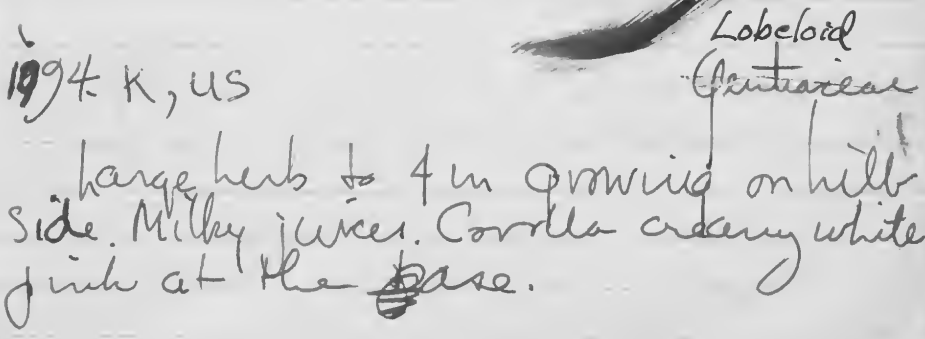 Lobeloid
1994. K, US
Gentiaceae
Large herb to 4 m growing on hill
side. Milky juices. Corolla creamy white
pink at the base.